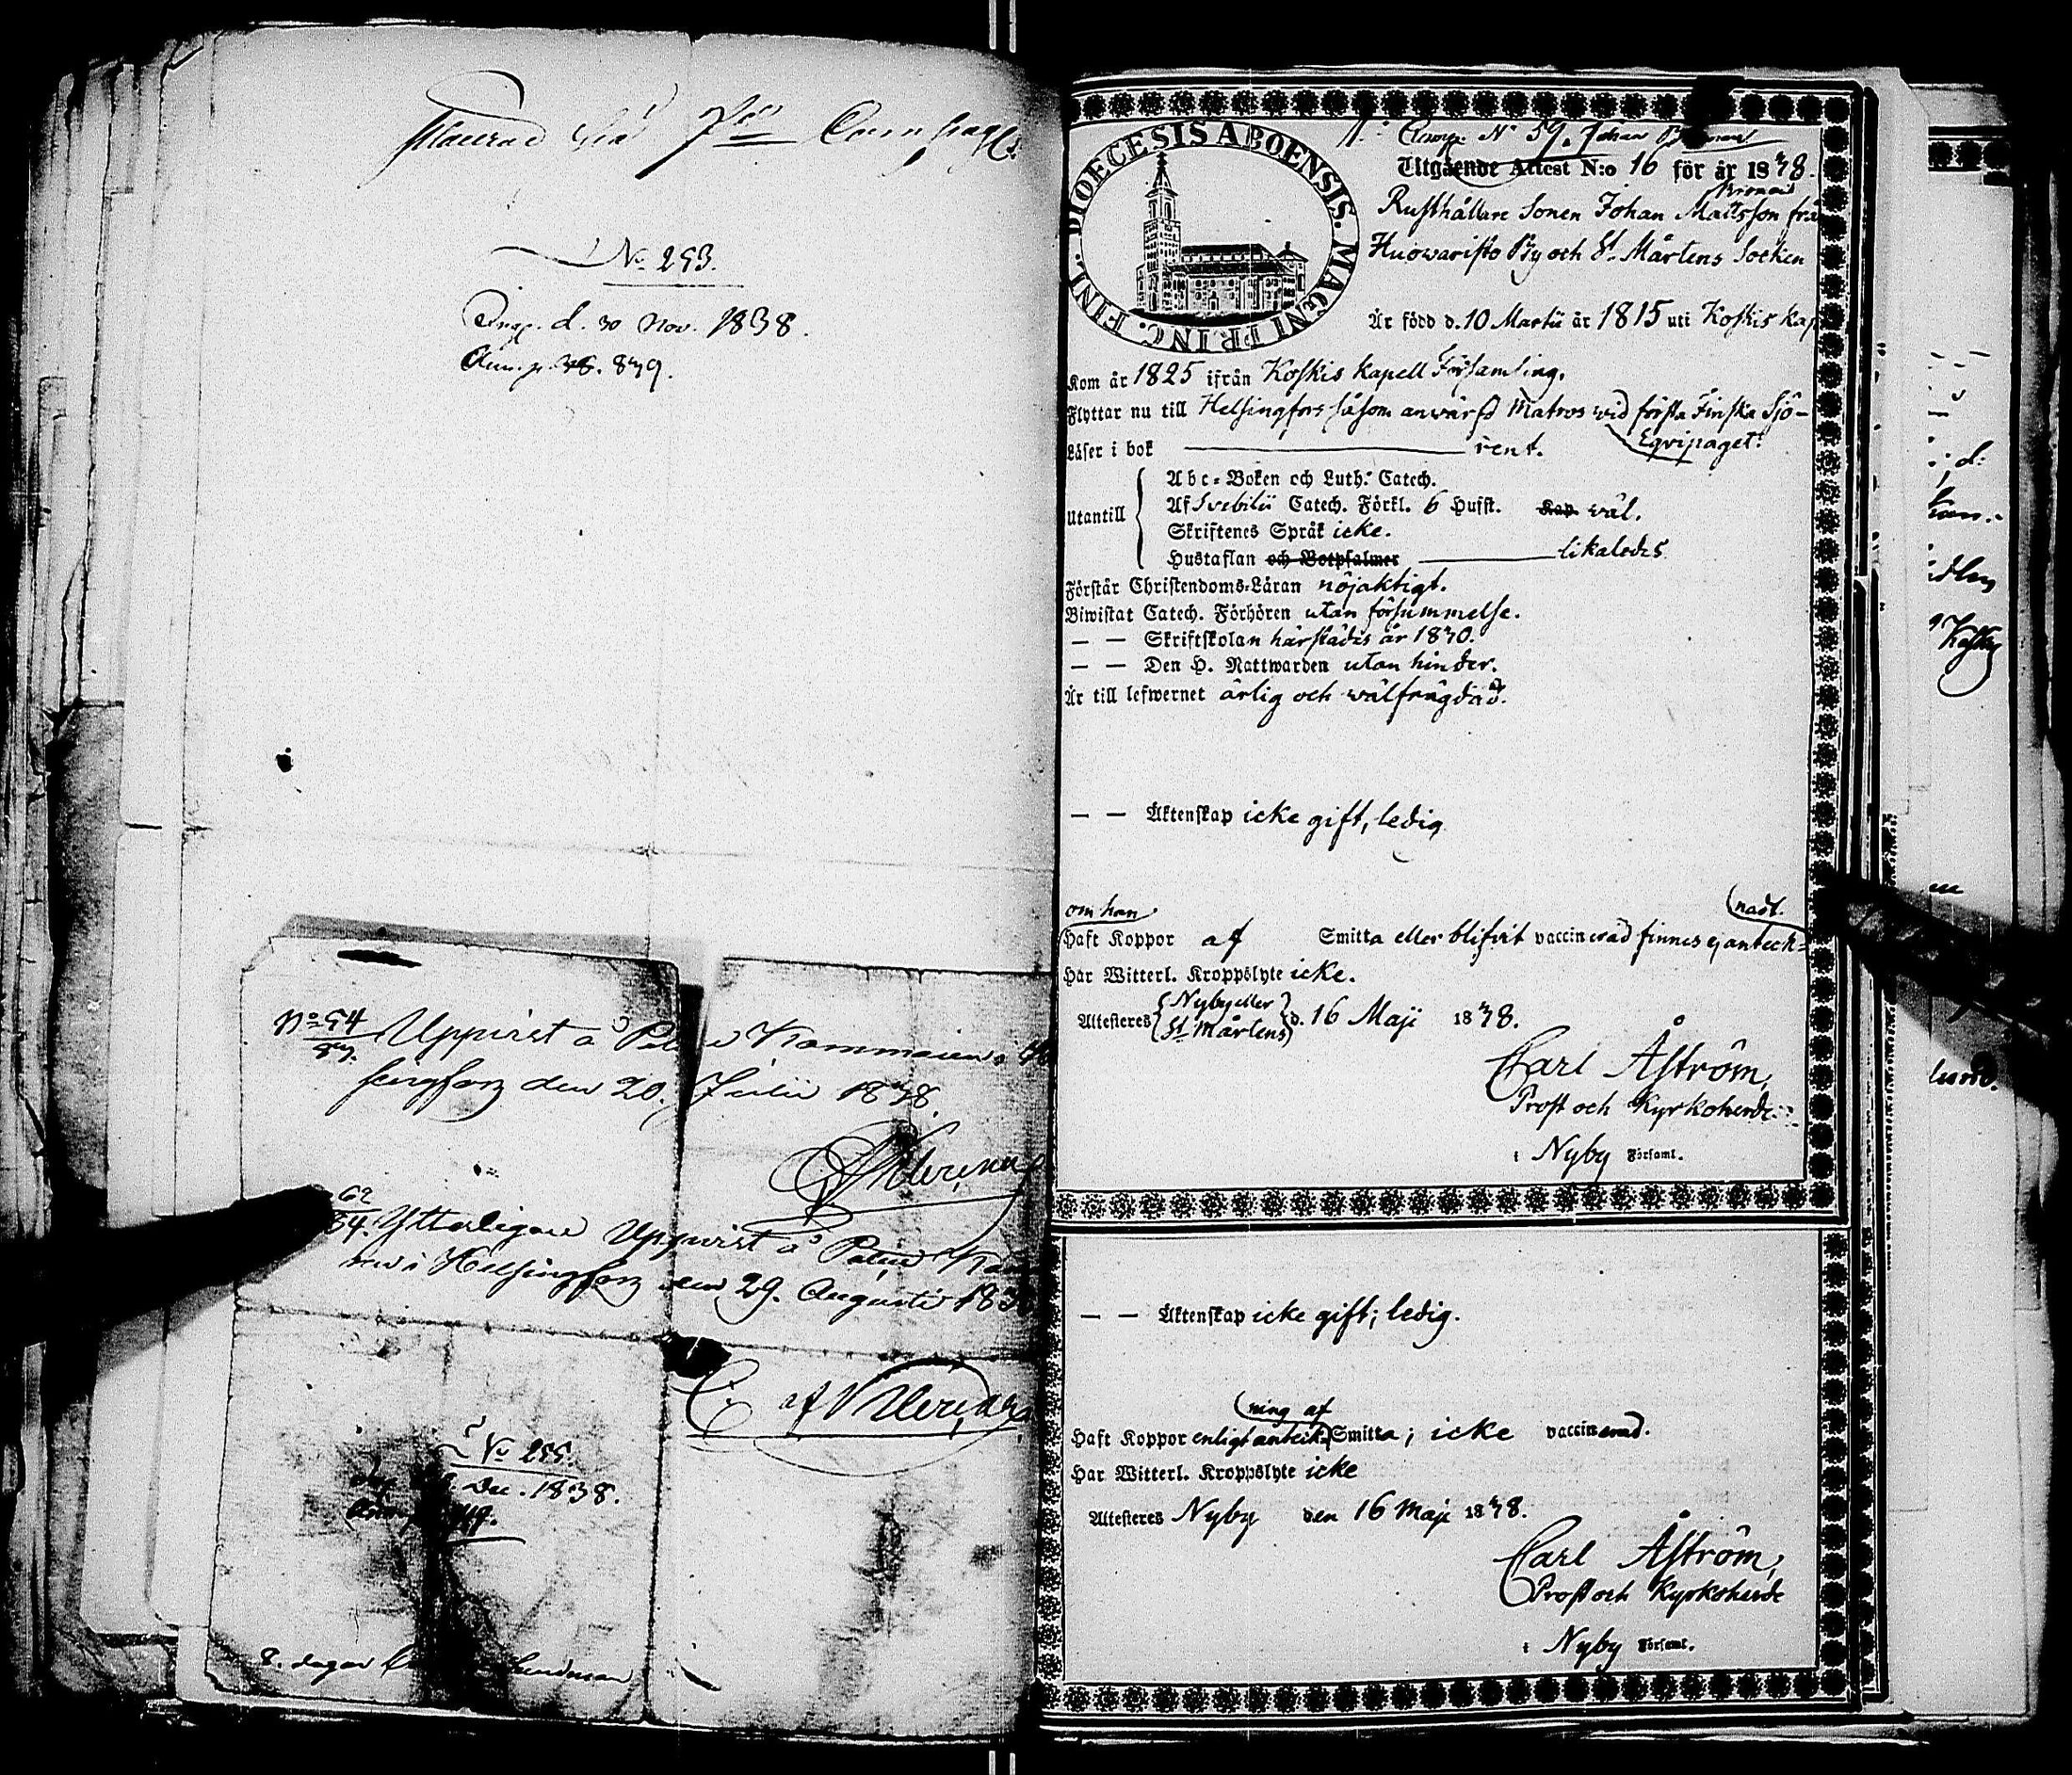 No 293.
Insp. d. 30 Nov. 1838.
No 54
Uppvist å
singfors den 20. Julii 1838.
Ytterligare Uppvist å Police
i Helsingfors den 29. Augusti
No 255.
Dec. 1838.
8. dagar
DIOECESIS ABOENSIS. MAGNI PRINC. FINL.
Comp. No 59. Johan
Utgående Attest N:o 16 för år 1838.
Rusthållare Sonen Johan Mattsson frå
Huowaristo By och St Mårtens Socken
Är född d. 10 Martii år 1815 uti Koskis kap
Kom år 1825 ifrån Koskis kapell Församling.
Flyttar nu till Helsingfors såsom anwärfd Matros wid första Finska Sjö-
Eqvipaget.
Läser i bok rent.
Abc-Boken och Luth. Catech.
Utantill Af Svebilii Catech. Förkl. 6 Hufst. Kap. wäl.
Skriftenes Språk icke.
Hustaflan och Botpsalmer likaledes
Förstår Christendoms-Läran nöjaktigt.
Biwistat Catech. Förhören utan försummelse.
— — Skriftskolan härstädes år 1830.
— — Den H. Nattwarden utan hinder.
Är till lefwernet ärlig och wälfrägdad.
— — Äktenskap icke gift, ledig
om han
Haft Koppor af Smitta eller blifvit vaccinerad finnes ej anteck-
nadt.
Har Witterl. Kroppslyte icke.
Attesteres Nyby eller St Mårtens d. 16 Maji 1838.
Carl Åström,
Prost och Kyrkoherde
i Nyby Församl.
— — Äktenskap icke gift; ledig.
Haft Koppor enligt anteck-
ning af
Smitta; icke vaccinerad.
Har Witterl. Kroppslyte icke
Attesteres Nyby den 16 Maji 1838.
Carl Åström,
Prost och Kyrkoherde
i Nyby Församl.